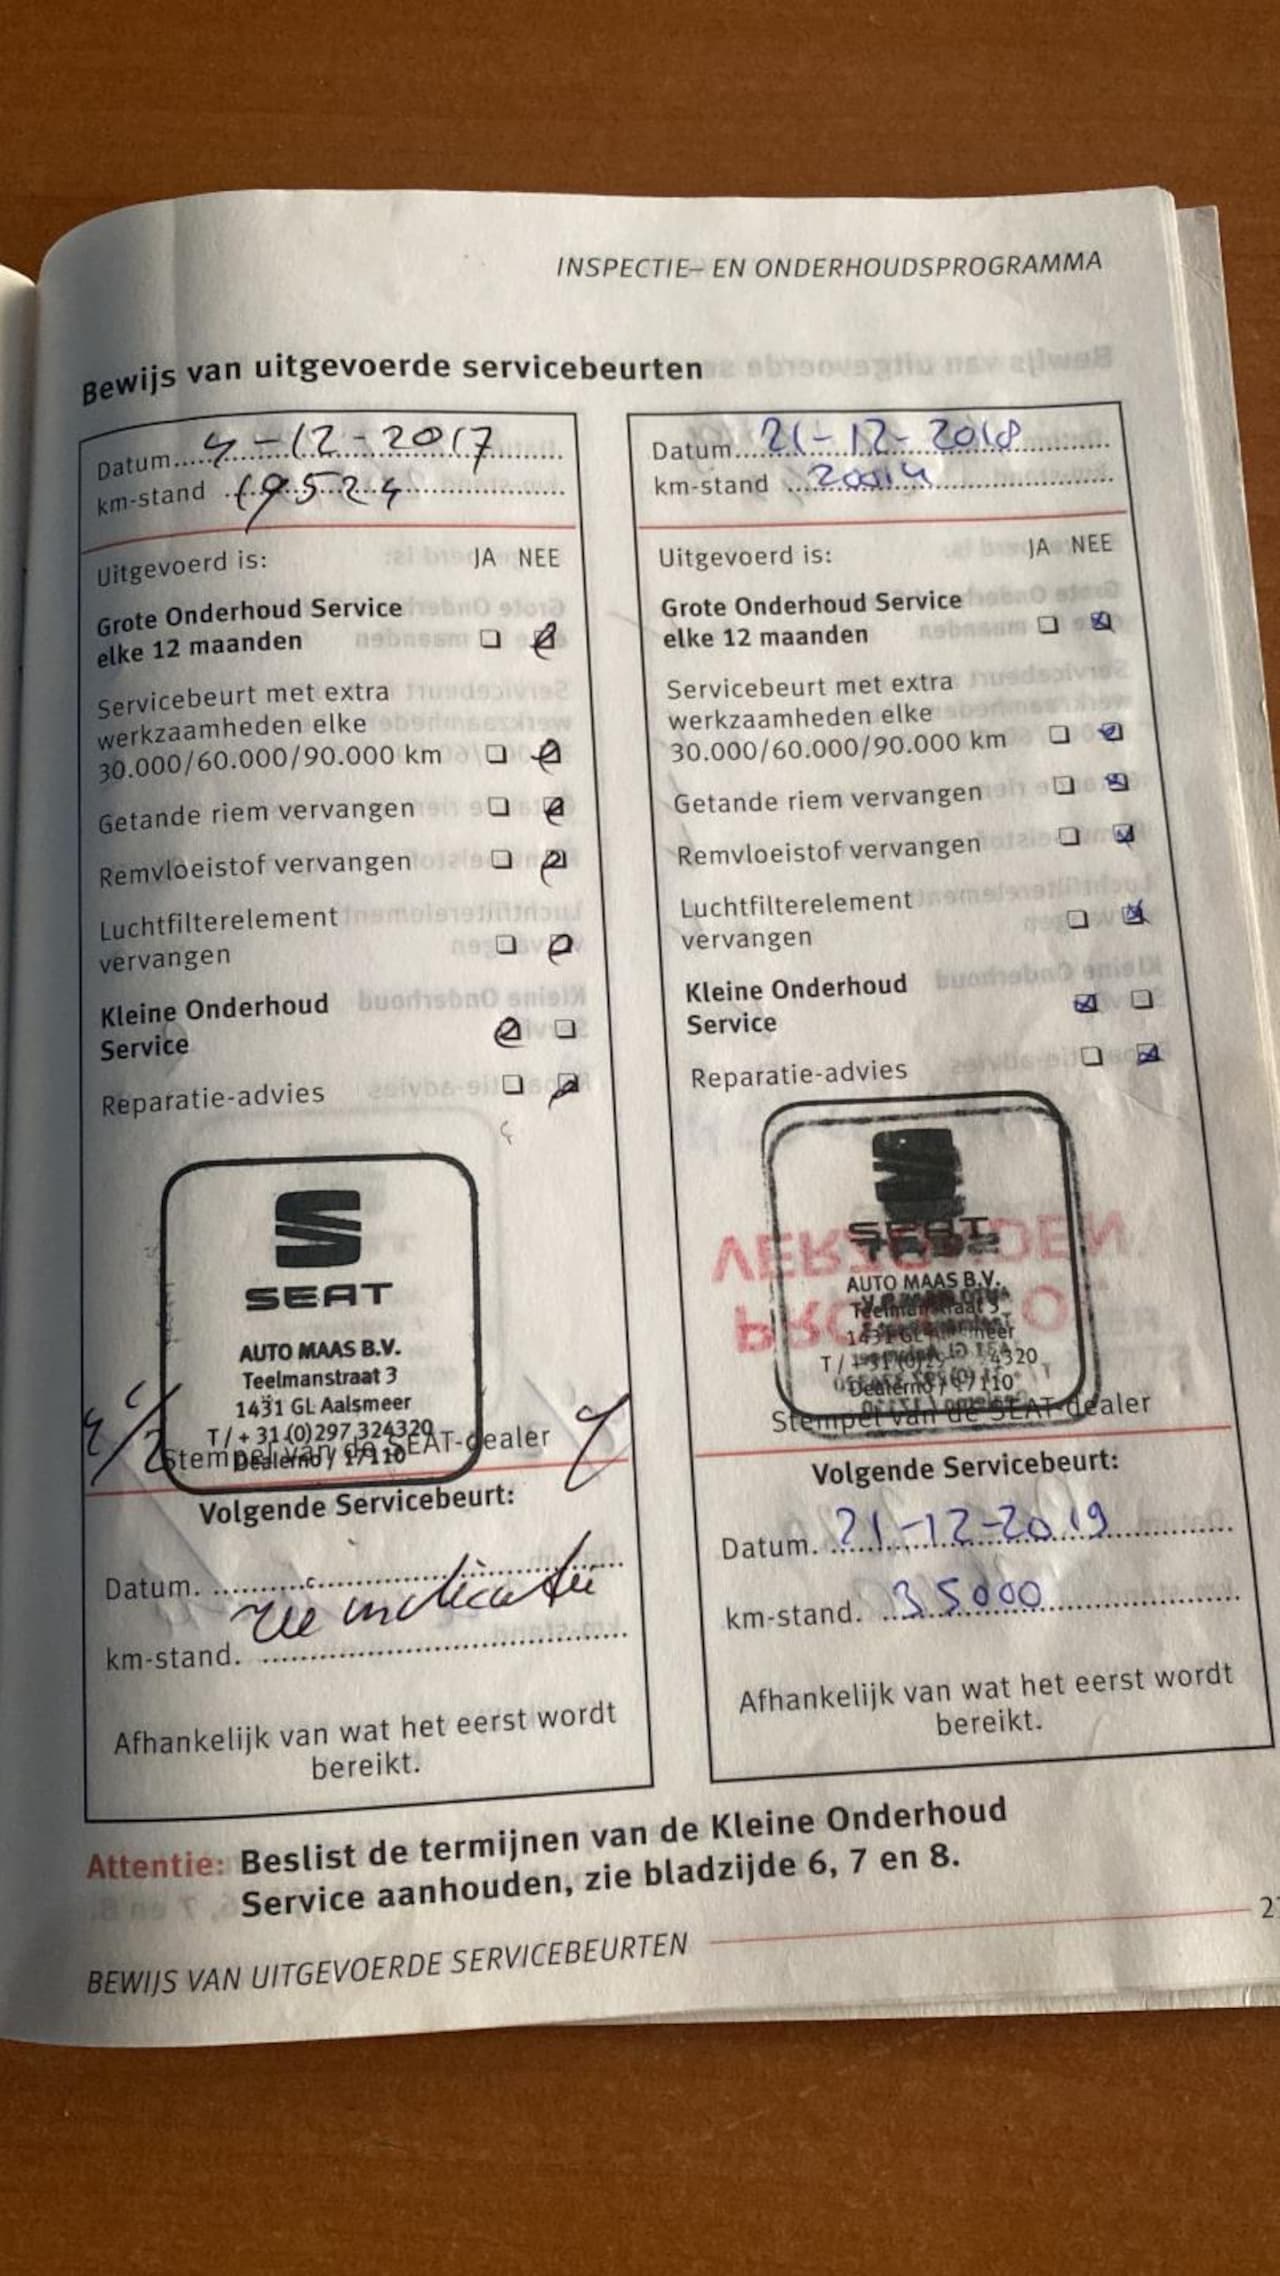 INSPECTIE– EN ONDERHOUDSPROGRAMMA
Bewijs van uitgevoerde servicebeurten
Datum 4-12-2017
km-stand 19524
Uitgevoerd is: JA NEE
Grote Onderhoud Service
elke 12 maanden
Servicebeurt met extra
werkzaamheden elke
30.000/60.000/90.000 km
Getande riem vervangen
Remvloeistof vervangen
Luchtfilterelement
vervangen
Kleine Onderhoud
Service
Reparatie-advies
SEAT
AUTO MAAS B.V.
Teelmanstraat 3
1431 GL Aalsmeer
T / + 31 (0) 297 324320
Dealerno / 17110
Stempel van de SEAT-dealer
Volgende Servicebeurt:
Datum.
zie indicatie
km-stand.
Afhankelijk van wat het eerst wordt
bereikt.
Datum 21-12-2018
km-stand 20014
Uitgevoerd is: JA NEE
Grote Onderhoud Service
elke 12 maanden
Servicebeurt met extra
werkzaamheden elke
30.000/60.000/90.000 km
Getande riem vervangen
Remvloeistof vervangen
Luchtfilterelement
vervangen
Kleine Onderhoud
Service
Reparatie-advies
SEAT
AUTO MAAS B.V.
Teelmanstraat 3
1431 GL Aalsmeer
Dealerno / 17110
Stempel van de SEAT-dealer
Volgende Servicebeurt:
Datum. 21-12-2019
km-stand. 35000
Afhankelijk van wat het eerst wordt
bereikt.
Attentie: Beslist de termijnen van de Kleine Onderhoud
Service aanhouden, zie bladzijde 6, 7 en 8.
BEWIJS VAN UITGEVOERDE SERVICEBEURTEN